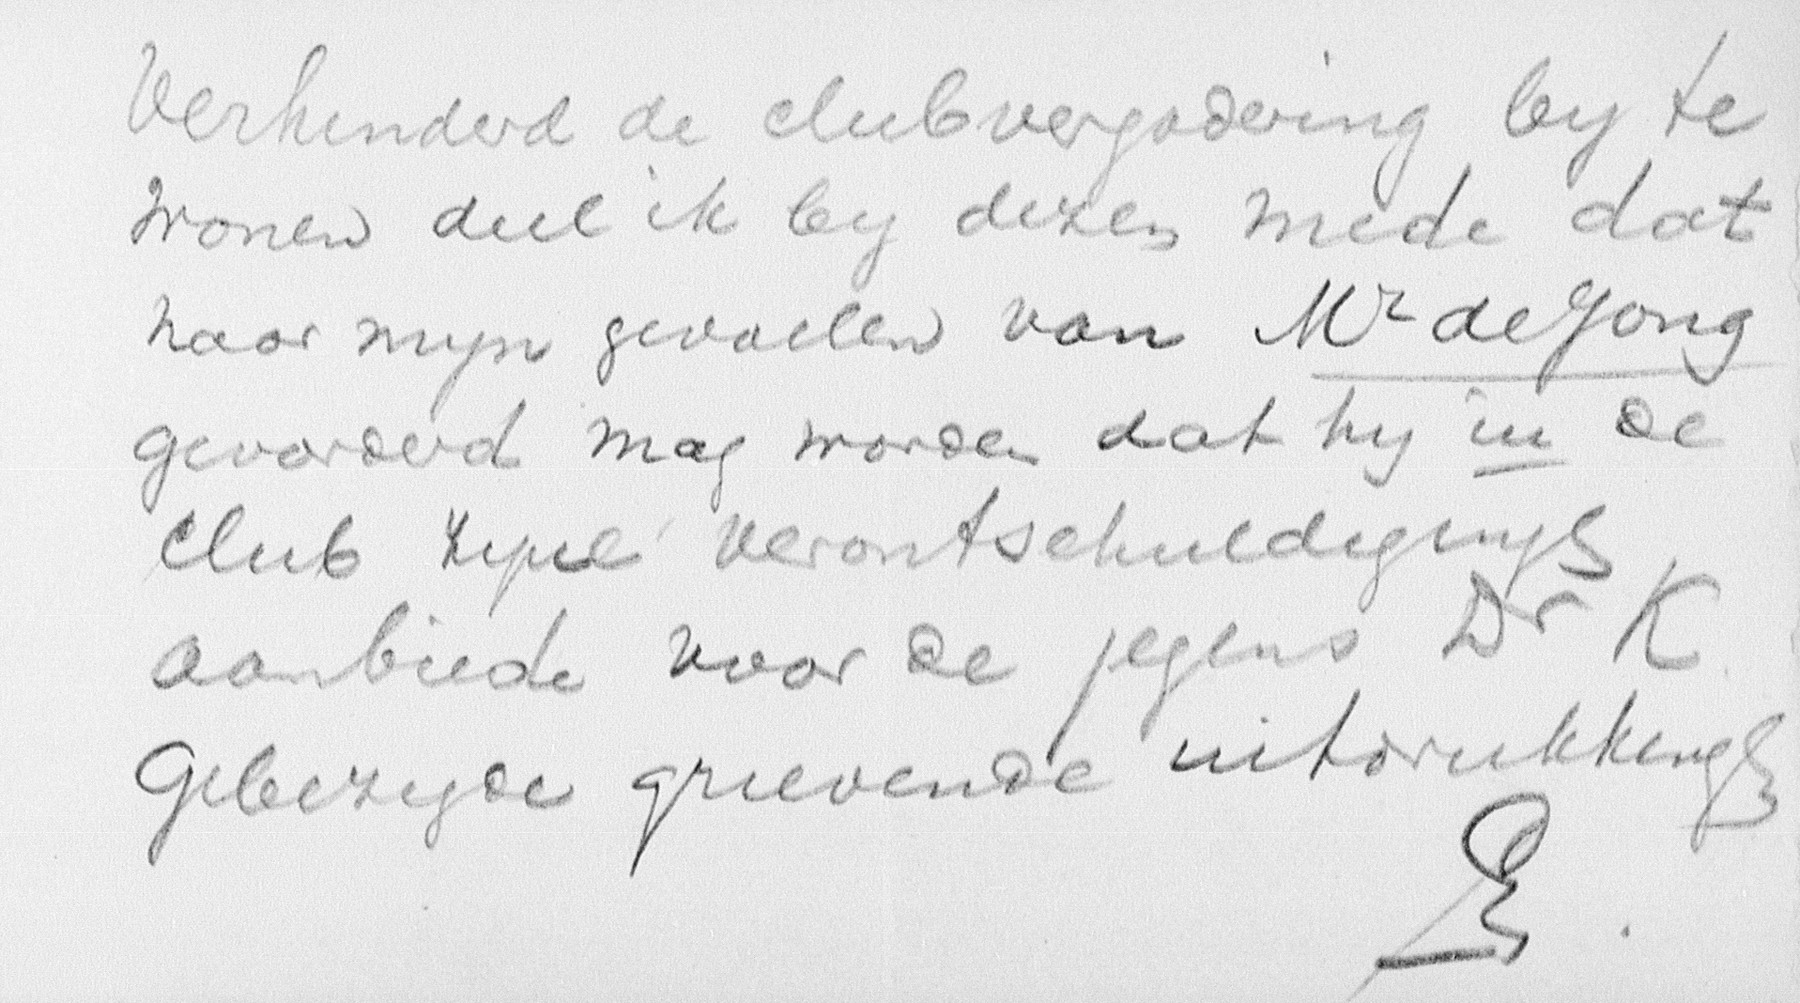 Verhinderd de clubvergadering by te
wonen deel ik by dezen mede dat
naar myn gevoelen van Mr de Jong
gevorderd mag worden dat hy in de
club zyne verontschuldigingen
aanbiede voor de jegens Dr K
Gebezigde grievende uitdrukkingen